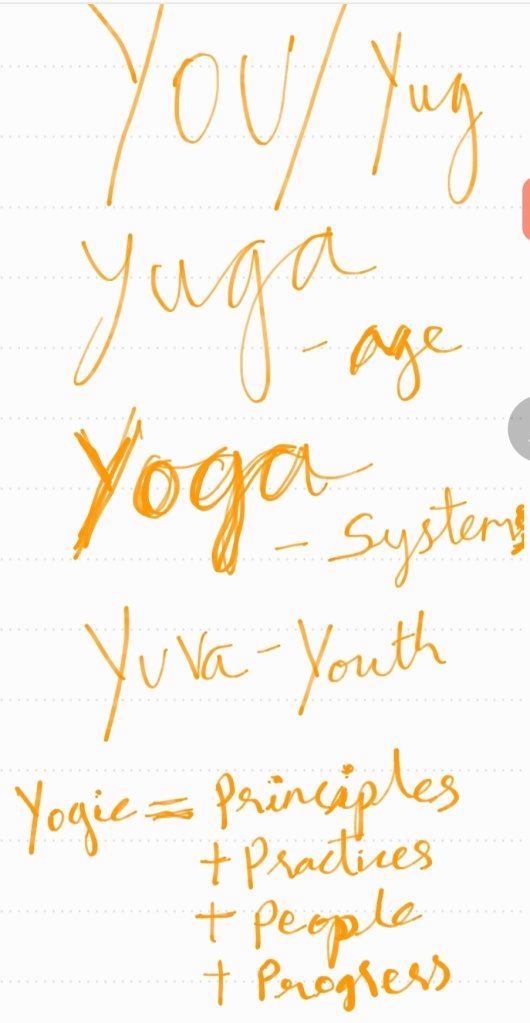 YOU/Yug
Yuga
- age
Yoga
- Systems
Yuva - Youth
Yogic = Principles
+ Practices
+ People
+ Progress